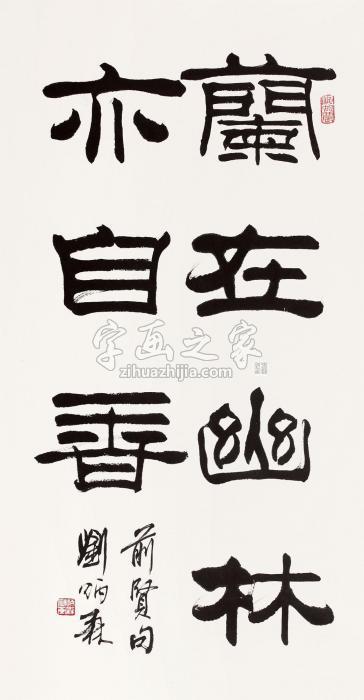 蘭在幽林
亦自香
前賢句
劉炳森
字画之家
zihuazhijia.com